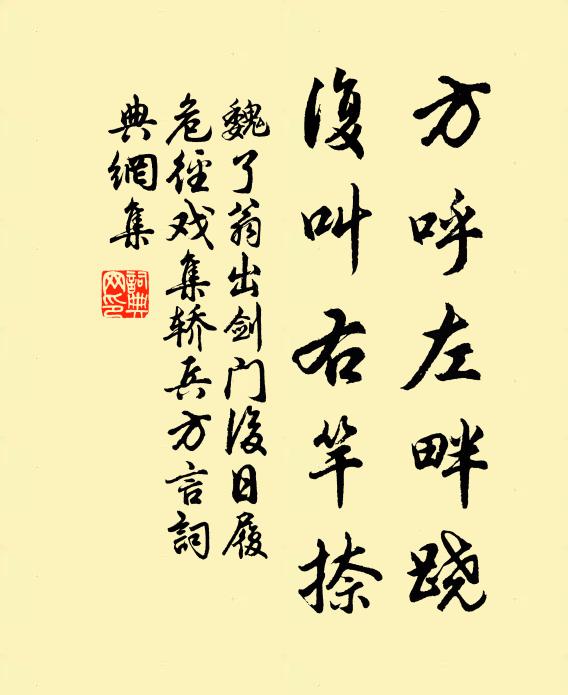 方呼左畔跷
復叫右竿捺
魏了翁出剑门後日履
危径戏集轿兵方言詞
典網集
詞典網印